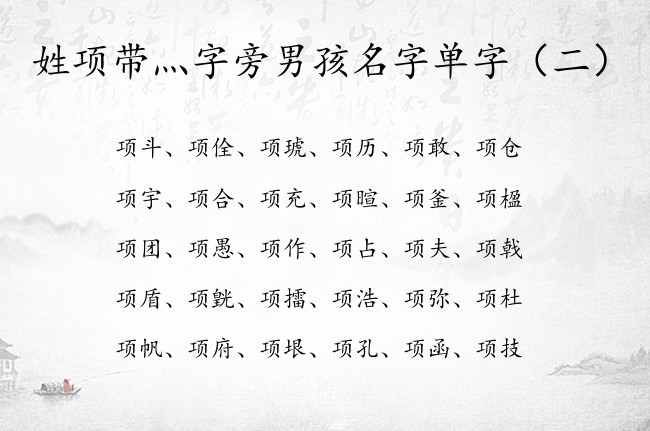 姓项带灬字旁男孩名字单字（二）
项斗、项佺、项琥、项历、项敢、项仓
项宇、项合、项充、项暄、项釜、项楹
项团、项愚、项作、项占、项夫、项戟
项盾、项觥、项擂、项浩、项弥、项杜
项帆、项府、项垠、项孔、项函、项技